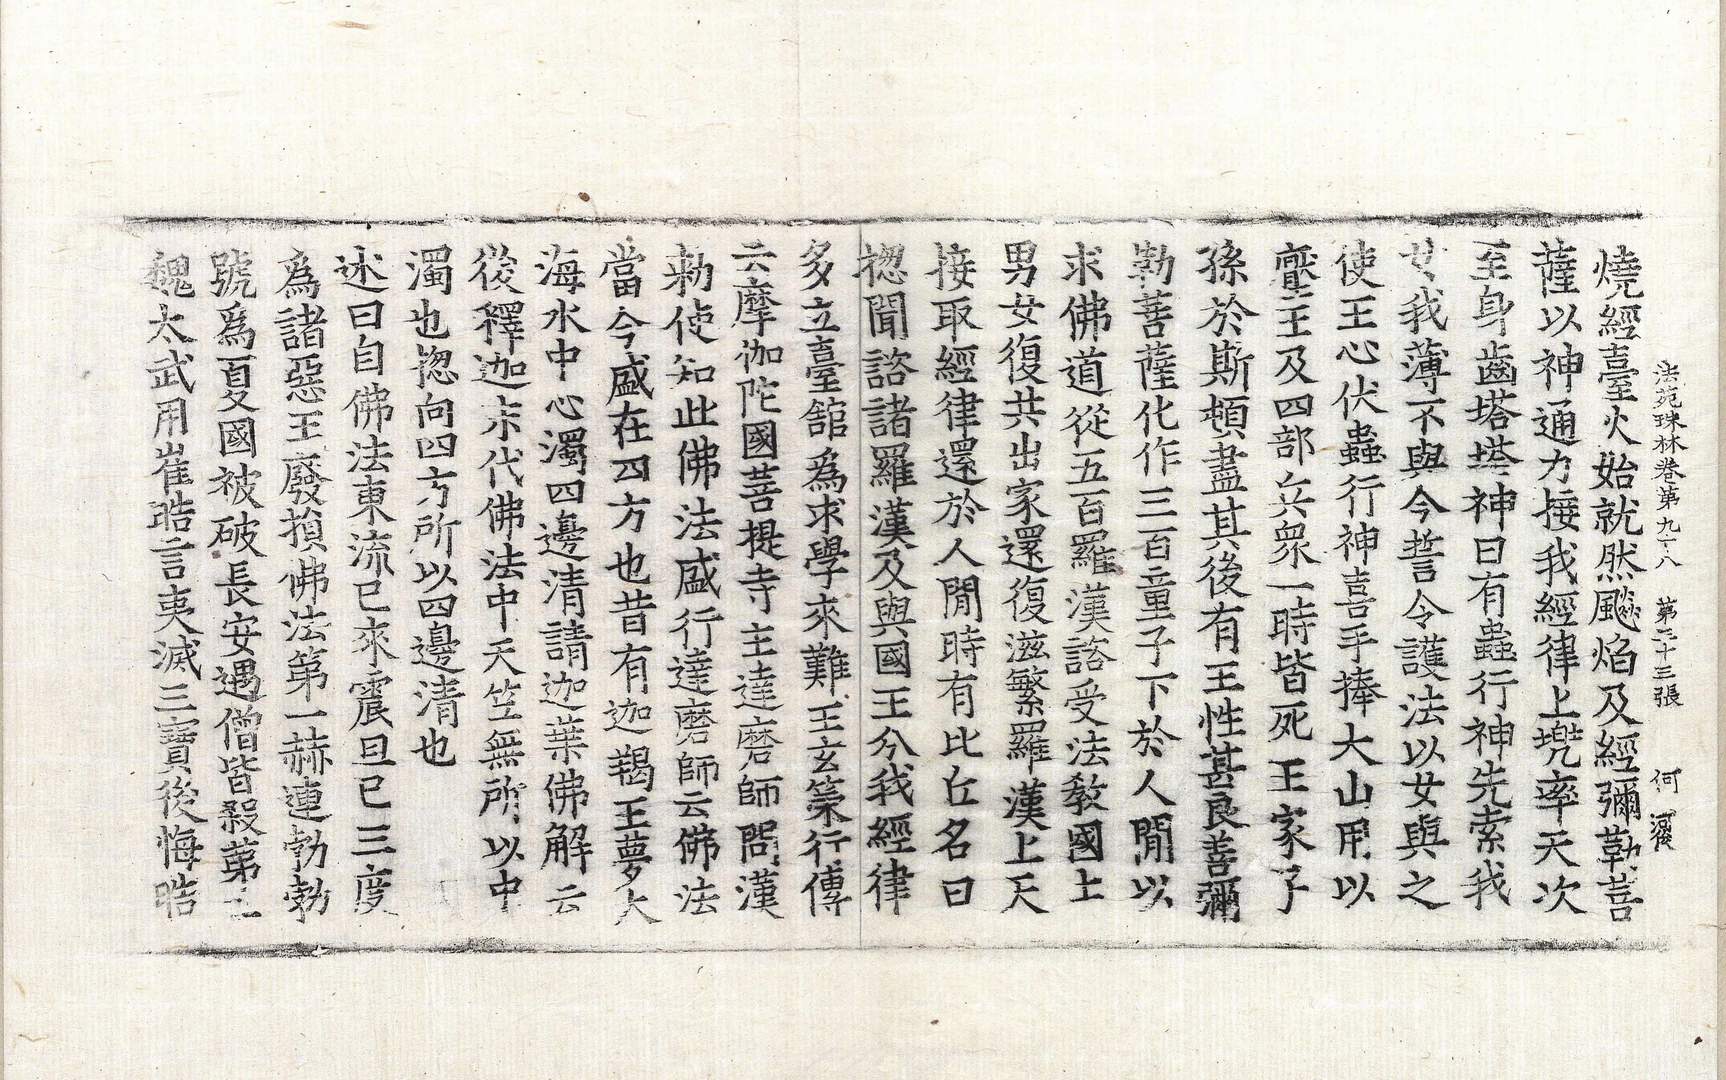 法苑珠林卷第九十八　第二十三張　何
燒經臺火始就然飈焰及經彌勒菩
薩以神通力接我經律上兠率天次
至身齒塔塔神曰有蟲行神先索我
女我薄不與今誓令護法以女與之
使王心伏蟲行神喜手捧大山用以
壓王及四部兵衆一時皆死王家子
孫於斯頓盡其後有王性甚良善彌
勒菩薩化作三百童子下於人間以
求佛道從五百羅漢諮受法教國上
男女復共出家還復滋繁羅漢上天
接取經律還於人間時有比丘名曰
揔聞諮諸羅漢及與國王分我經律
多立臺舘爲求學來難王玄䇿行傳
云摩伽陀國菩提寺主達磨師問漢
勑使知此佛法盛行達磨師云佛法
當今盛在四方也昔有迦羯王夢大
海水中心濁四邊清請迦葉佛解云
後釋迦末代佛法中天竺無所以中
濁也揔向四方所以四邊清也
述曰自佛法東流已來震旦已三度
爲諸惡王廢損佛法第一赫連勃勃
號爲夏國被破長安遇僧皆殺第二
魏太武用崔晧言夷滅三寶後悔晧